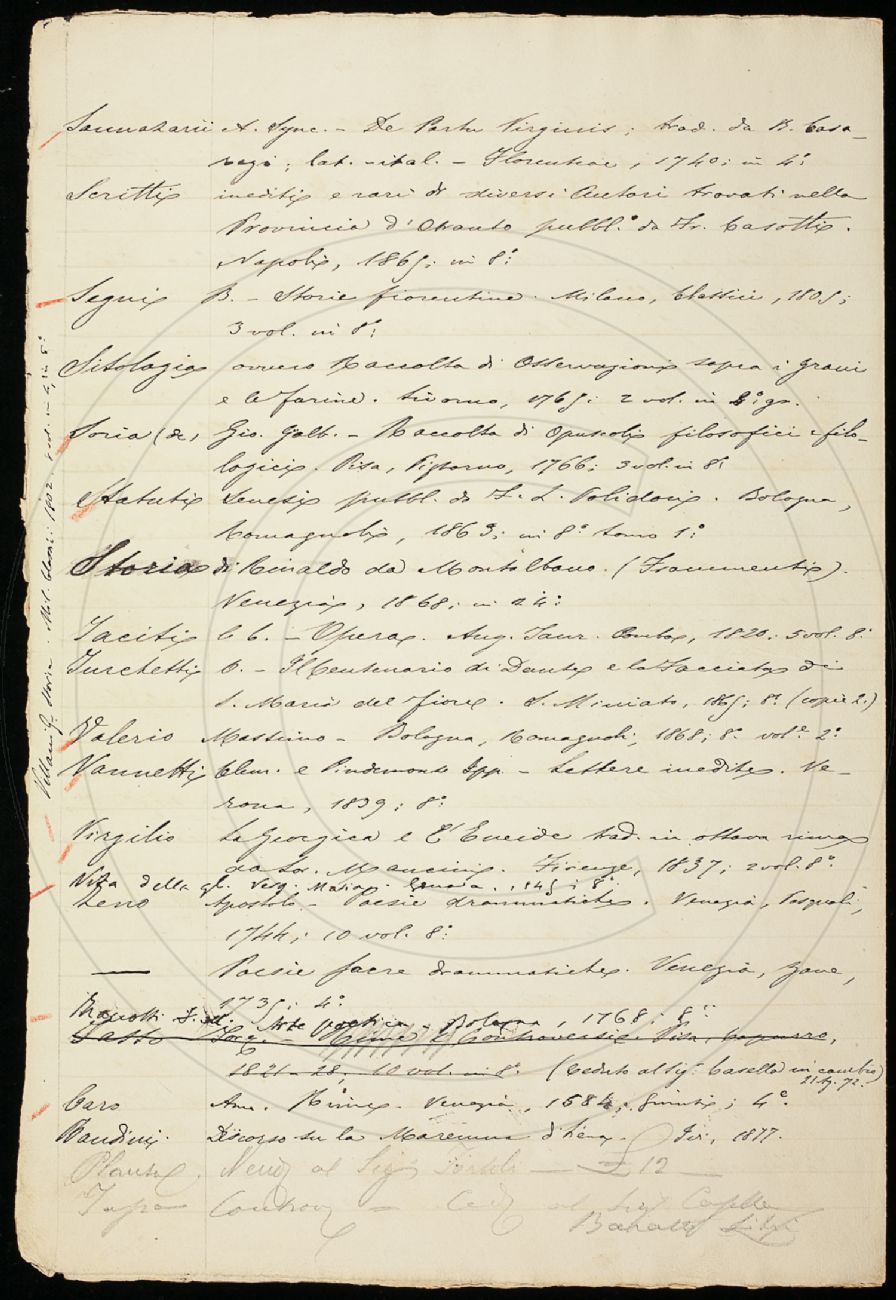 Sannazarii A. Sync. - De Partu Virginis; trad. da B. Casa-
regi; lat.-ital. - Florentiae, 1740; in 4º:
Scritti inediti e rari di diversi Autori trovati nella
Provincia d'Otranto pubbl.º da Fr. Casotti.
Napoli, 1865; in 8º:
Segni B. - Storie fiorentine. Milano, Classici, 1805;
3 vol. in 8º:
Sitologia ovvero Raccolta di Osservazioni sopra i grani
e le farine. Livorno, 1765: 2 vol. in 8º gr.
Soria (de) Gio. Galb. - Raccolta di Opuscoli filosofici e filo-
logici. Pisa, Pizzorno, 1766; 3 vol. in 8º
Statuti Senesi pubbl. da F. L. Polidori. Bologna,
Romagnoli, 1863; in 8º tomo 1º:
Storia di Rinaldo da Montalbano. (Frammenti).
Venezia, 1868; in 24º:
Taciti C. C. - Opera. Aug. Taur. Pomba, 1820: 5 vol. 8º
Turchetti O. - Il Centenario di Dante e la Facciata di
S. Maria del Fiore. S. Miniato, 1865; 8º. (copie 2.)
Valerio Massimo - Bologna, Romagnoli, 1868; 8º vol.e 2º
Vannetti Clem. e Pindemonte Ipp. - Lettere inedite. Ve-
rona, 1839; 8º:
Villani G. Storia. Mil. Classici: 1802. 8 vol. in 8º
Virgilio La Georgica e L'Eneide trad. in ottava rima
da Lor. Mancini. Firenze, 1837; 2 vol. 8º.
Vita della gl. Verg. Maria. 8º.
Zeno Apostolo - Poesie drammatiche. Venezia, Pasquali,
1744; 10 vol. 8º:
— Poesie sacre drammatiche. Venezia, Zane,
1735; 4º.
Zanotti F. M. Arte poetica - Bologna, 1768; 8º:
Tasso - Rime e Controversie. Pisa, Capurro,
1821-28, 10 vol. in 8º. (Ceduto al Sig. Casella in cambio)
Caro Ann. Rime. Venezia, 1584, Giunti; 4º.
Bandini. Discorso su la Maremma di Siena. Fir, 1877.
al Sig 12
al Sig